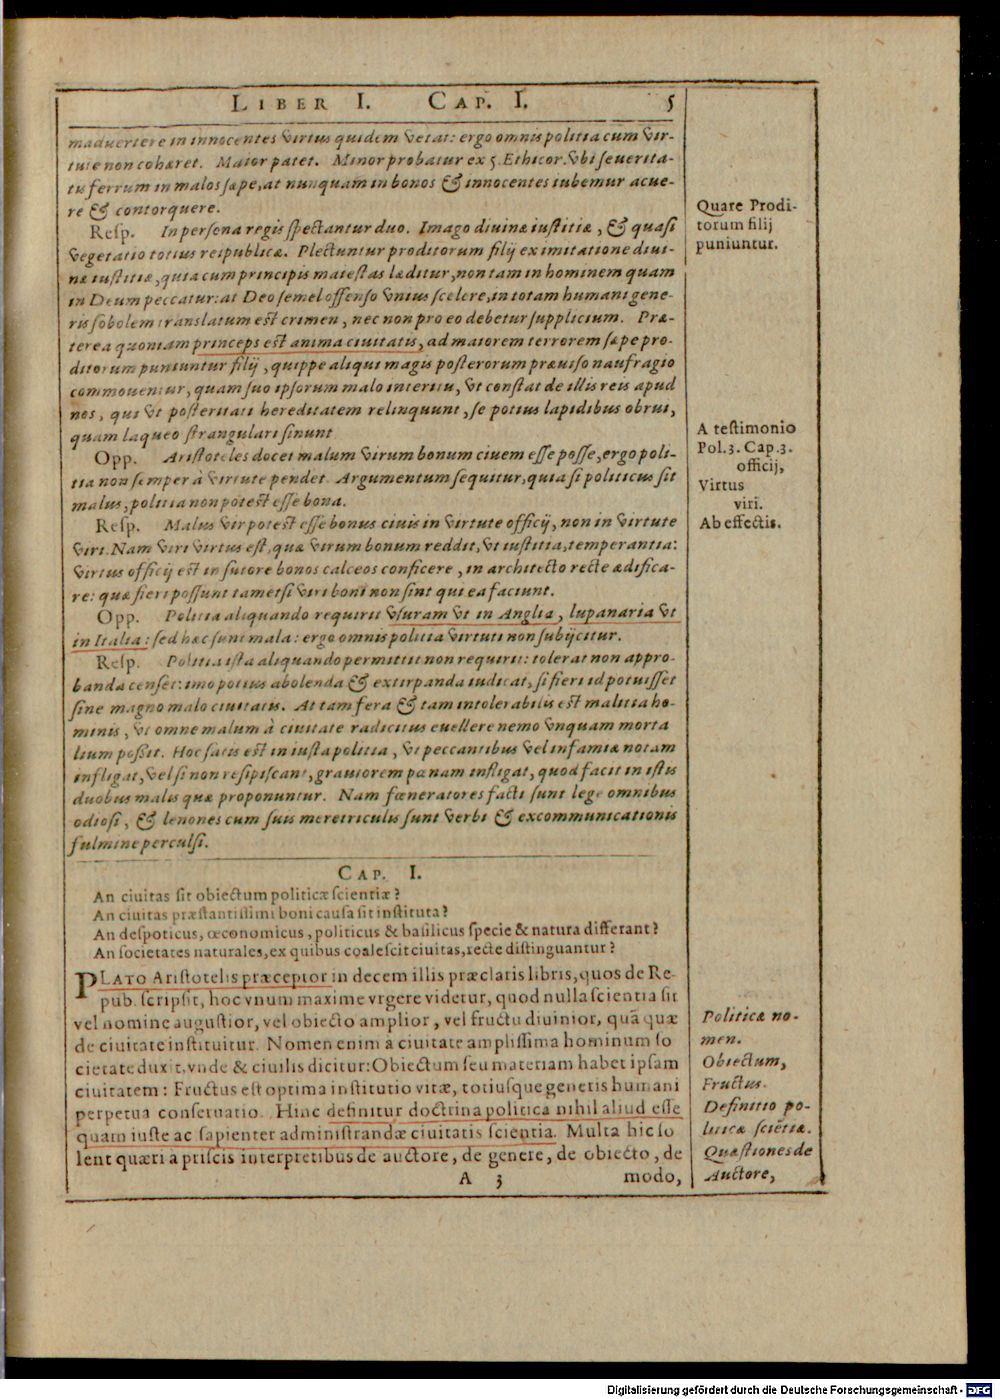 LIBER I. CAP. I. 5
maduertere in innocentes virtus quidem vetat: ergo omnis politia cum vir-
tute non cohæret. Maior patet. Minor probatur ex 5. Ethicor. vbi seuerita-
tis ferrum in malos sæpe, at nunquam in bonos & innocentes iubemur acue-
re & contorquere.
Resp. In persona regis spectantur duo. Imago diuinæ iustitiæ, & quasi
vegetatio totius reipublicæ. Plectuntur proditorum filij ex imitatione diui-
næ iustitiæ, quia cum principis maiestas læditur, non tam in hominem quam
in Deum peccatur: at Deo semel offenso vnius scelere, in totam humani gene-
ris sobolem translatum est crimen, nec non pro eo debetur supplicium. Præ-
terea quoniam princeps est anima ciuitatis, ad maiorem terrorem sæpe pro-
ditorum puniuntur filij, quippe aliqui magis posterorum præuiso naufragio
commouentur, quam suo ipsorum malo interitu, vt constat de illis reis apud
nos, qui vt posteritati hereditatem relinquunt, se potius lapidibus obrui,
quam laqueo strangulari sinunt.
Opp. Aristoteles docet malum virum bonum ciuem esse posse, ergo poli-
tia non semper à virtute pendet. Argumentum sequitur, quia si politicus sit
malus, politia non potest esse bona.
Resp. Malus vir potest esse bonus ciuis in virtute officij, non in virtute
viri. Nam viri virtus est, quæ virum bonum reddit, vt iustitia, temperantia:
virtus officij est in sutore bonos calceos conficere, in architecto recte ædifica-
re: quæ fieri possunt tametsi viri boni non sint qui ea faciunt.
Opp. Politia aliquando requirit vsuram vt in Anglia, lupanaria vt
in Italia: sed hæc sunt mala: ergo omnis politia virtuti non subijcitur.
Resp. Politia ista aliquando permittit non requirit: tolerat non appro-
banda censet: imo potius abolenda & extirpanda iudicat, si fieri id potuisset
sine magno malo ciuitatis. At tam fera & tam intolerabilis est malitia ho-
minis, vt omne malum à ciuitate radicitus euellere nemo vnquam morta
lium possit. Hoc satis est in iusta politia, vt peccantibus vel infamiæ notam
infligat, vel si non resipiscant, grauiorem pœnam infligat, quod facit in istis
duobus malis quæ proponuntur. Nam fœneratores facti sunt lege omnibus
odiosi, & lenones cum suis meretriculis sunt verbi & excommunicationis
fulmine perculsi.
CAP. I.
An ciuitas sit obiectum politicæ scientiæ?
An ciuitas præstantissimi boni causa sit instituta?
An despoticus, œconomicus, politicus & basilicus specie & natura differant?
An societates naturales, ex quibus coalescit ciuitas, recte distinguantur?
PLATO Aristotelis præceptor in decem illis præclaris libris, quos de Re-
pub. scripsit, hoc vnum maxime vrgere videtur, quod nulla scientia sit
vel nomine augustior, vel obiecto amplior, vel fructu diuinior, quã quæ
de ciuitate instituitur. Nomen enim à ciuitate amplissima hominum so
cietate duxit, vnde & ciuilis dicitur: Obiectum seu materiam habet ipsam
ciuitatem: Fructus est optima institutio vitæ, totiusque generis humani
perpetua conseruatio. Hinc definitur doctrina politica nihil aliud esse
quam iuste ac sapienter administrandæ ciuitatis scientia. Multa hic so
lent quæri à priscis interpretibus de auctore, de genere, de obiecto, de
A 3 modo,
Quare Prodi-
torum filij
puniuntur.
A testimonio
Pol. 3. Cap. 3.
officij,
Virtus
viri.
Ab effectis.
Politicæ no-
men.
Obiectum,
Fructus.
Definitio po-
liticæ sciẽtiæ.
Quæstiones de
Auctore,
Digitalisierung gefördert durch die Deutsche Forschungsgemeinschaft - DFG